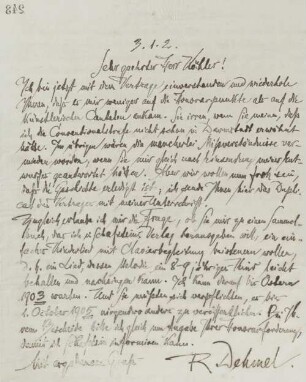 248
3. 1. 2.
Sehr geehrter Herr Köhler!
Ich bin jetzt mit dem Vertrage einverstanden und wiederhole
Ihnen, daß es mir weniger auf die Honorarpunkte als auf die
künstlerischen Cautelen ankam. Sie irren, wenn Sie meinen, daß
ich die Conventionalstrafe nicht schon in Darmstadt erwähnt
hätte. Im übrigen wären die mancherlei Missverständnisse ver-
mieden worden, wenn Sie mir gleich nach
geantwortet hätten. Aber wir wollen nun froh sein,
daß die Geschichte erledigt ist; ich sende Ihnen hier das Dupli-
cat des Vertrages mit meiner Unterschrift.
Zugleich erlaube ich mir die Frage, ob Sie mir zu einem Sammel-
buch, das ich im Verlag herausgeben will, ein ein-
faches Kinderlied mit Clavierbegleitung beisteuern wollen,
d. h. ein Lied, dessen Melodie ein 8-9jähriges Kind leicht
behalten und nachsingen kann. Ich kann darauf bis Ostern
1903 warten. Auch Sie müssten sich verpflichten, es vor
1. October nirgendwo anders zu veröffentlichen.
bitte ich gleich um Angabe Ihrer Honorarforderung,
damit ich informieren kann.
Mit ergebenem Gruß
R. Dehmel.